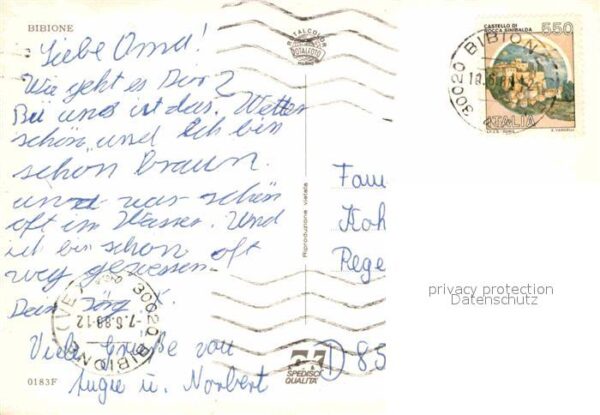 BIBIONE
Liebe Oma!
Wie geht es Dir?
Bei uns ist das Wetter
schön und Ich bin
schon braun.
und war schön
oft im Wasser. Und
ich bin schon oft
weg gewesen.
Dein Jörg. X
Viele Grüße von
Angie u. Norbert
0183F
ROTALCOLOR
ROTALFOTO
MILANO
Riproduzione vietata
SPEDISCI
QUALITÀ
CASTELLO DI
ROCCA SINIBALDA
550
ITALIA
30020 BIBIONE
30020 BIBIONE (VE)
-7.6.88-12
Fam
Koh
Rege
D 85
privacy protection
Datenschutz